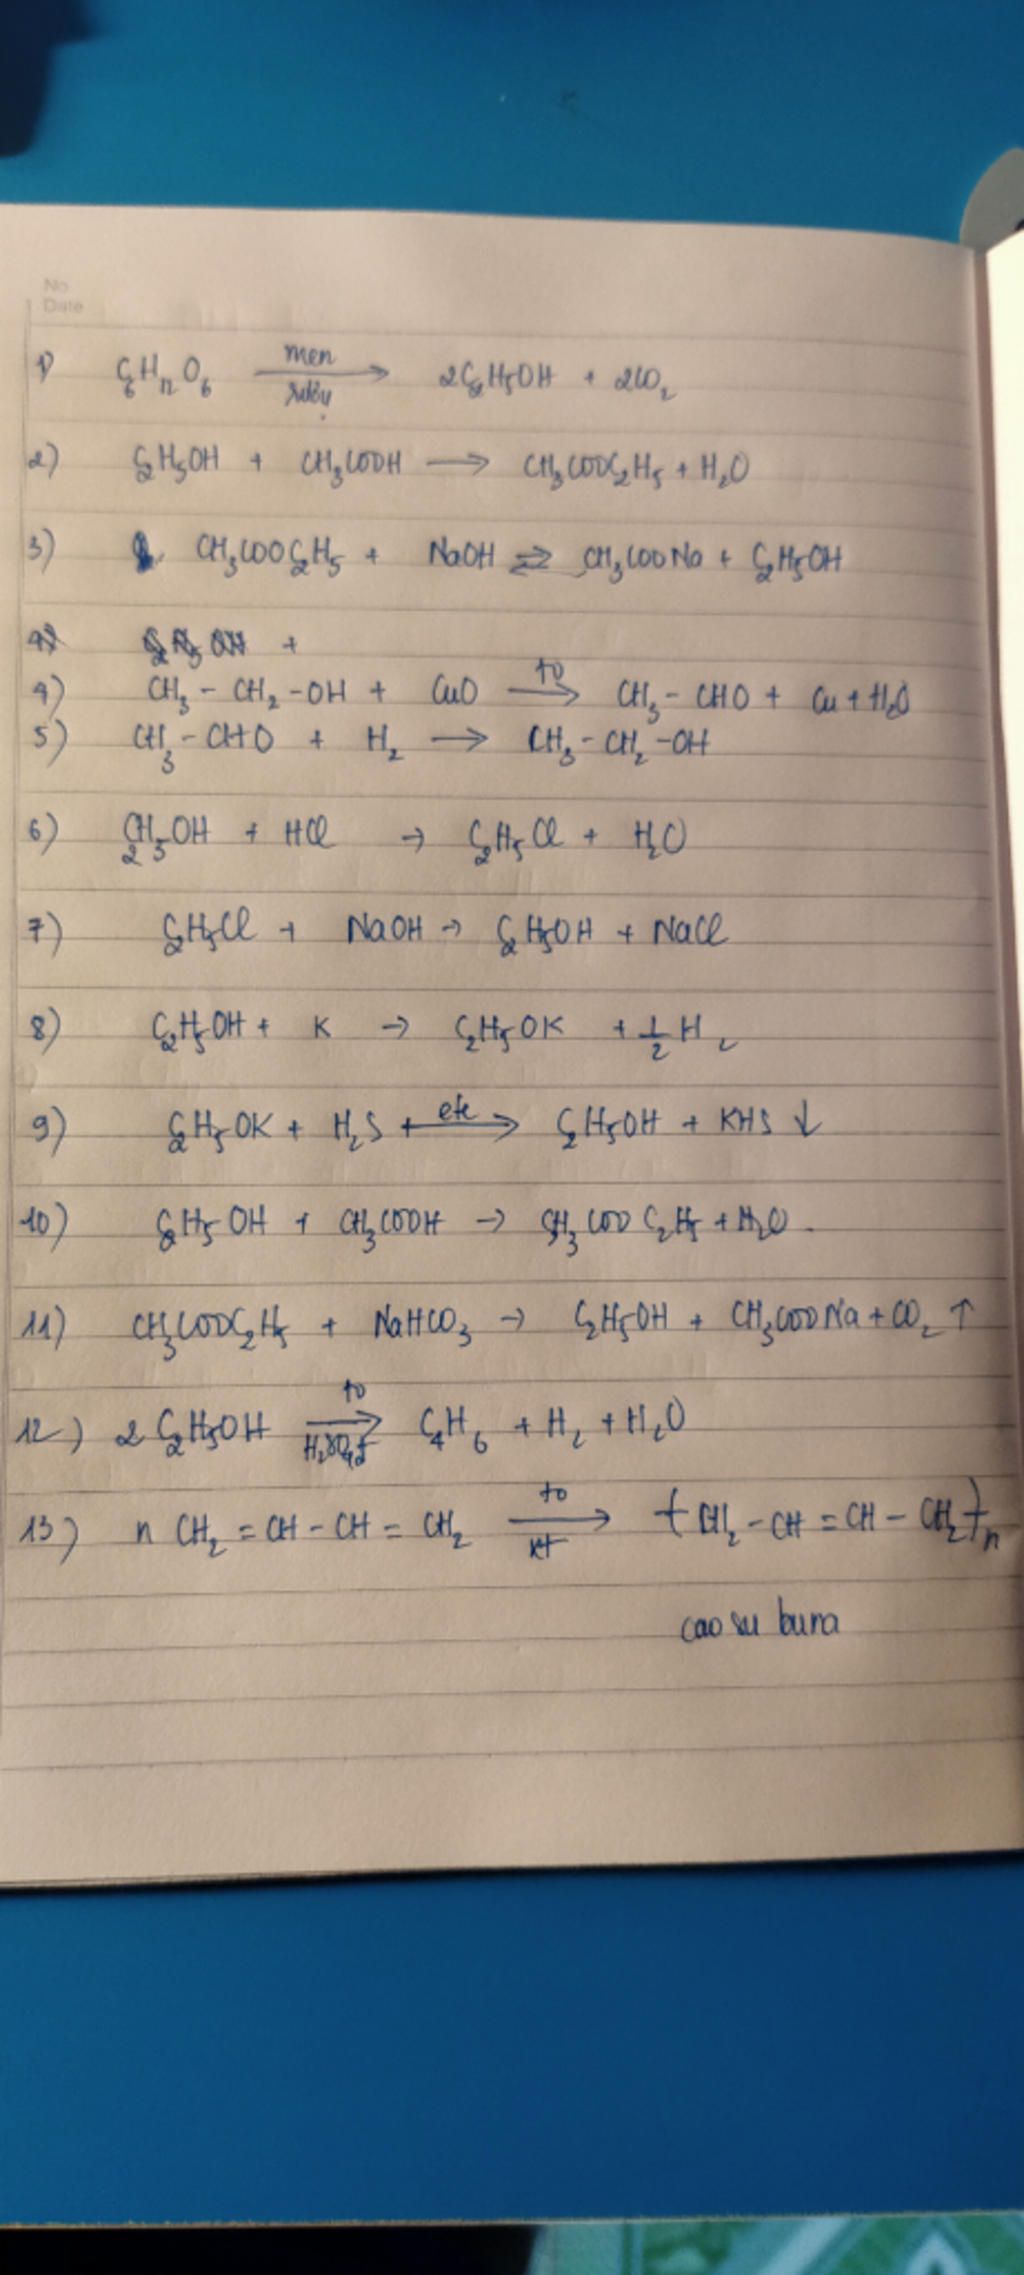 No
Date
1) C₆H₁₂O₆ men rượu → 2C₂H₅OH + 2CO₂
2) C₂H₅OH + CH₃COOH → CH₃COOC₂H₅ + H₂O
3) CH₃COOC₂H₅ + NaOH ⇌ CH₃COONa + C₂H₅OH
4) C₂H₅OH +
4) CH₃ - CH₂ - OH + CuO to → CH₃ - CHO + Cu + H₂O
5) CH₃ - CHO + H₂ → CH₃ - CH₂ - OH
6) C₂H₅OH + HCl → C₂H₅Cl + H₂O
7) C₂H₅Cl + NaOH → C₂H₅OH + NaCl
8) C₂H₅OH + K → C₂H₅OK + 1/2 H₂
9) C₂H₅OK + H₂S + ete → C₂H₅OH + KHS ↓
10) C₂H₅OH + CH₃COOH → CH₃COOC₂H₅ + H₂O.
11) CH₃COOC₂H₅ + NaHCO₃ → C₂H₅OH + CH₃COONa + CO₂ ↑
12) 2 C₂H₅OH to H₂SO₄đ → C₄H₆ + H₂ + H₂O
13) n CH₂ = CH - CH = CH₂ to xt → (CH₂ - CH = CH - CH₂)n
cao su buna